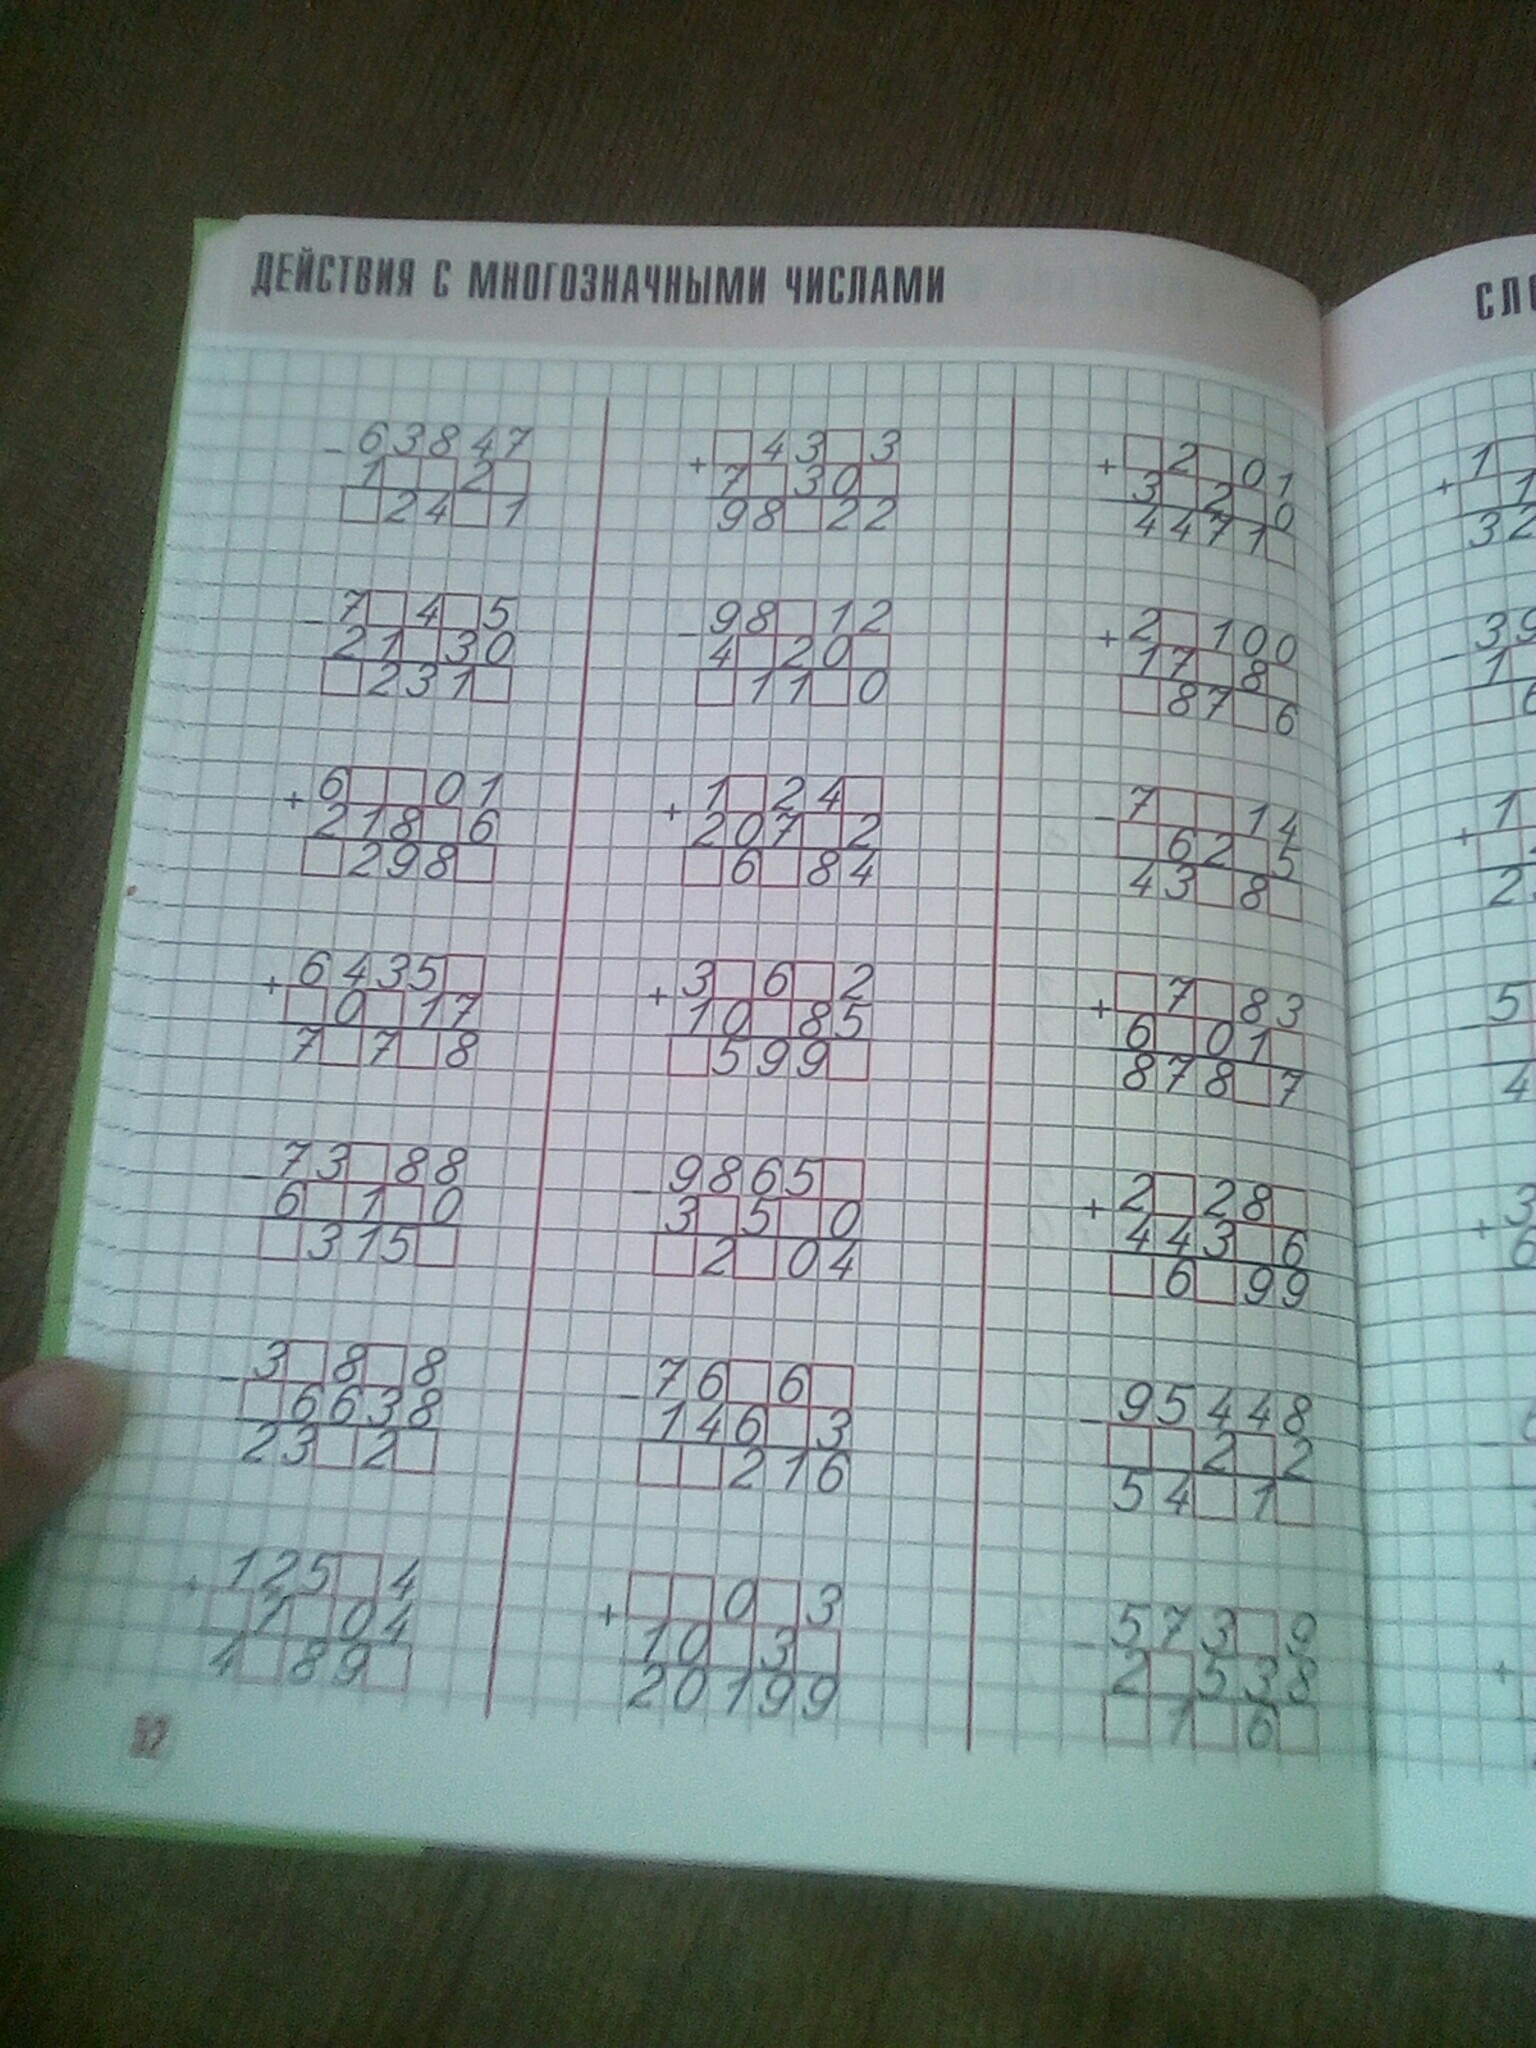 ДЕЙСТВИЯ С МНОГОЗНАЧНЫМИ ЧИСЛАМИ
- 63847
1□□2□
□24□1
- 7□4□5
21□30
□231□
+ 6□□01
218□6
□298□
+ 6435□
□0□17
7□7□8
- 73□88
6□1□0
□315□
- 3□8□8
□6638
23□2□
+ 125□4
□1□04
4□89□
+ □43□3
7□30□
98□22
- 98□12
4□20□
□11□0
+ 1□24□
207□2
□6□84
+ 3□6□2
10□85
□599□
- 9865□
3□5□0
□2□04
- 76□6□
146□3
□□216
+ □□0□3
10□3□
20199
+ □2□01
3□2□0
4471□
+ 2□100
17□8□
□87□6
- 7□□14
□62□5
43□8□
+ □7□83
6□01□
878□7
+ 2□28□
443□6
□6□99
- 95448
□□2□2
54□1□
- 573□9
2□538
□1□6□